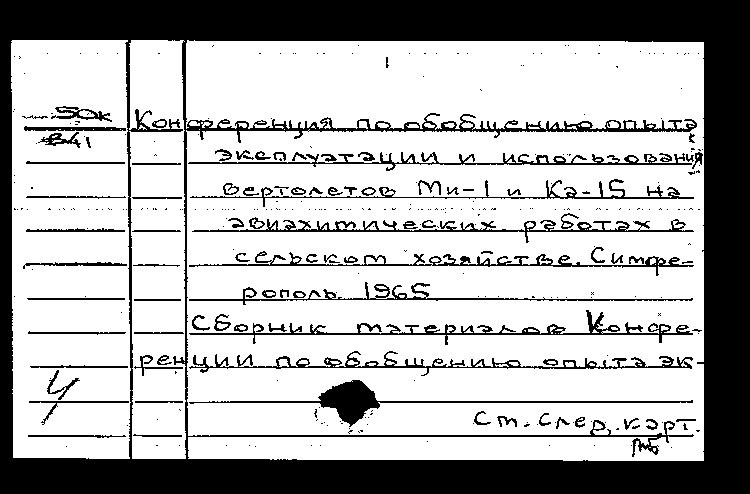 50к
В41
Конференция по обобщению опыта
эксплуатации и использования
вертолетов Ми-1 и Ка-15 на
авиахимических работах в
сельском хозяйстве. Симфе-
рополь 1965
Сборник материалов Конфе-
ренции по обобщению опыта эк-
У
См. след. карт.